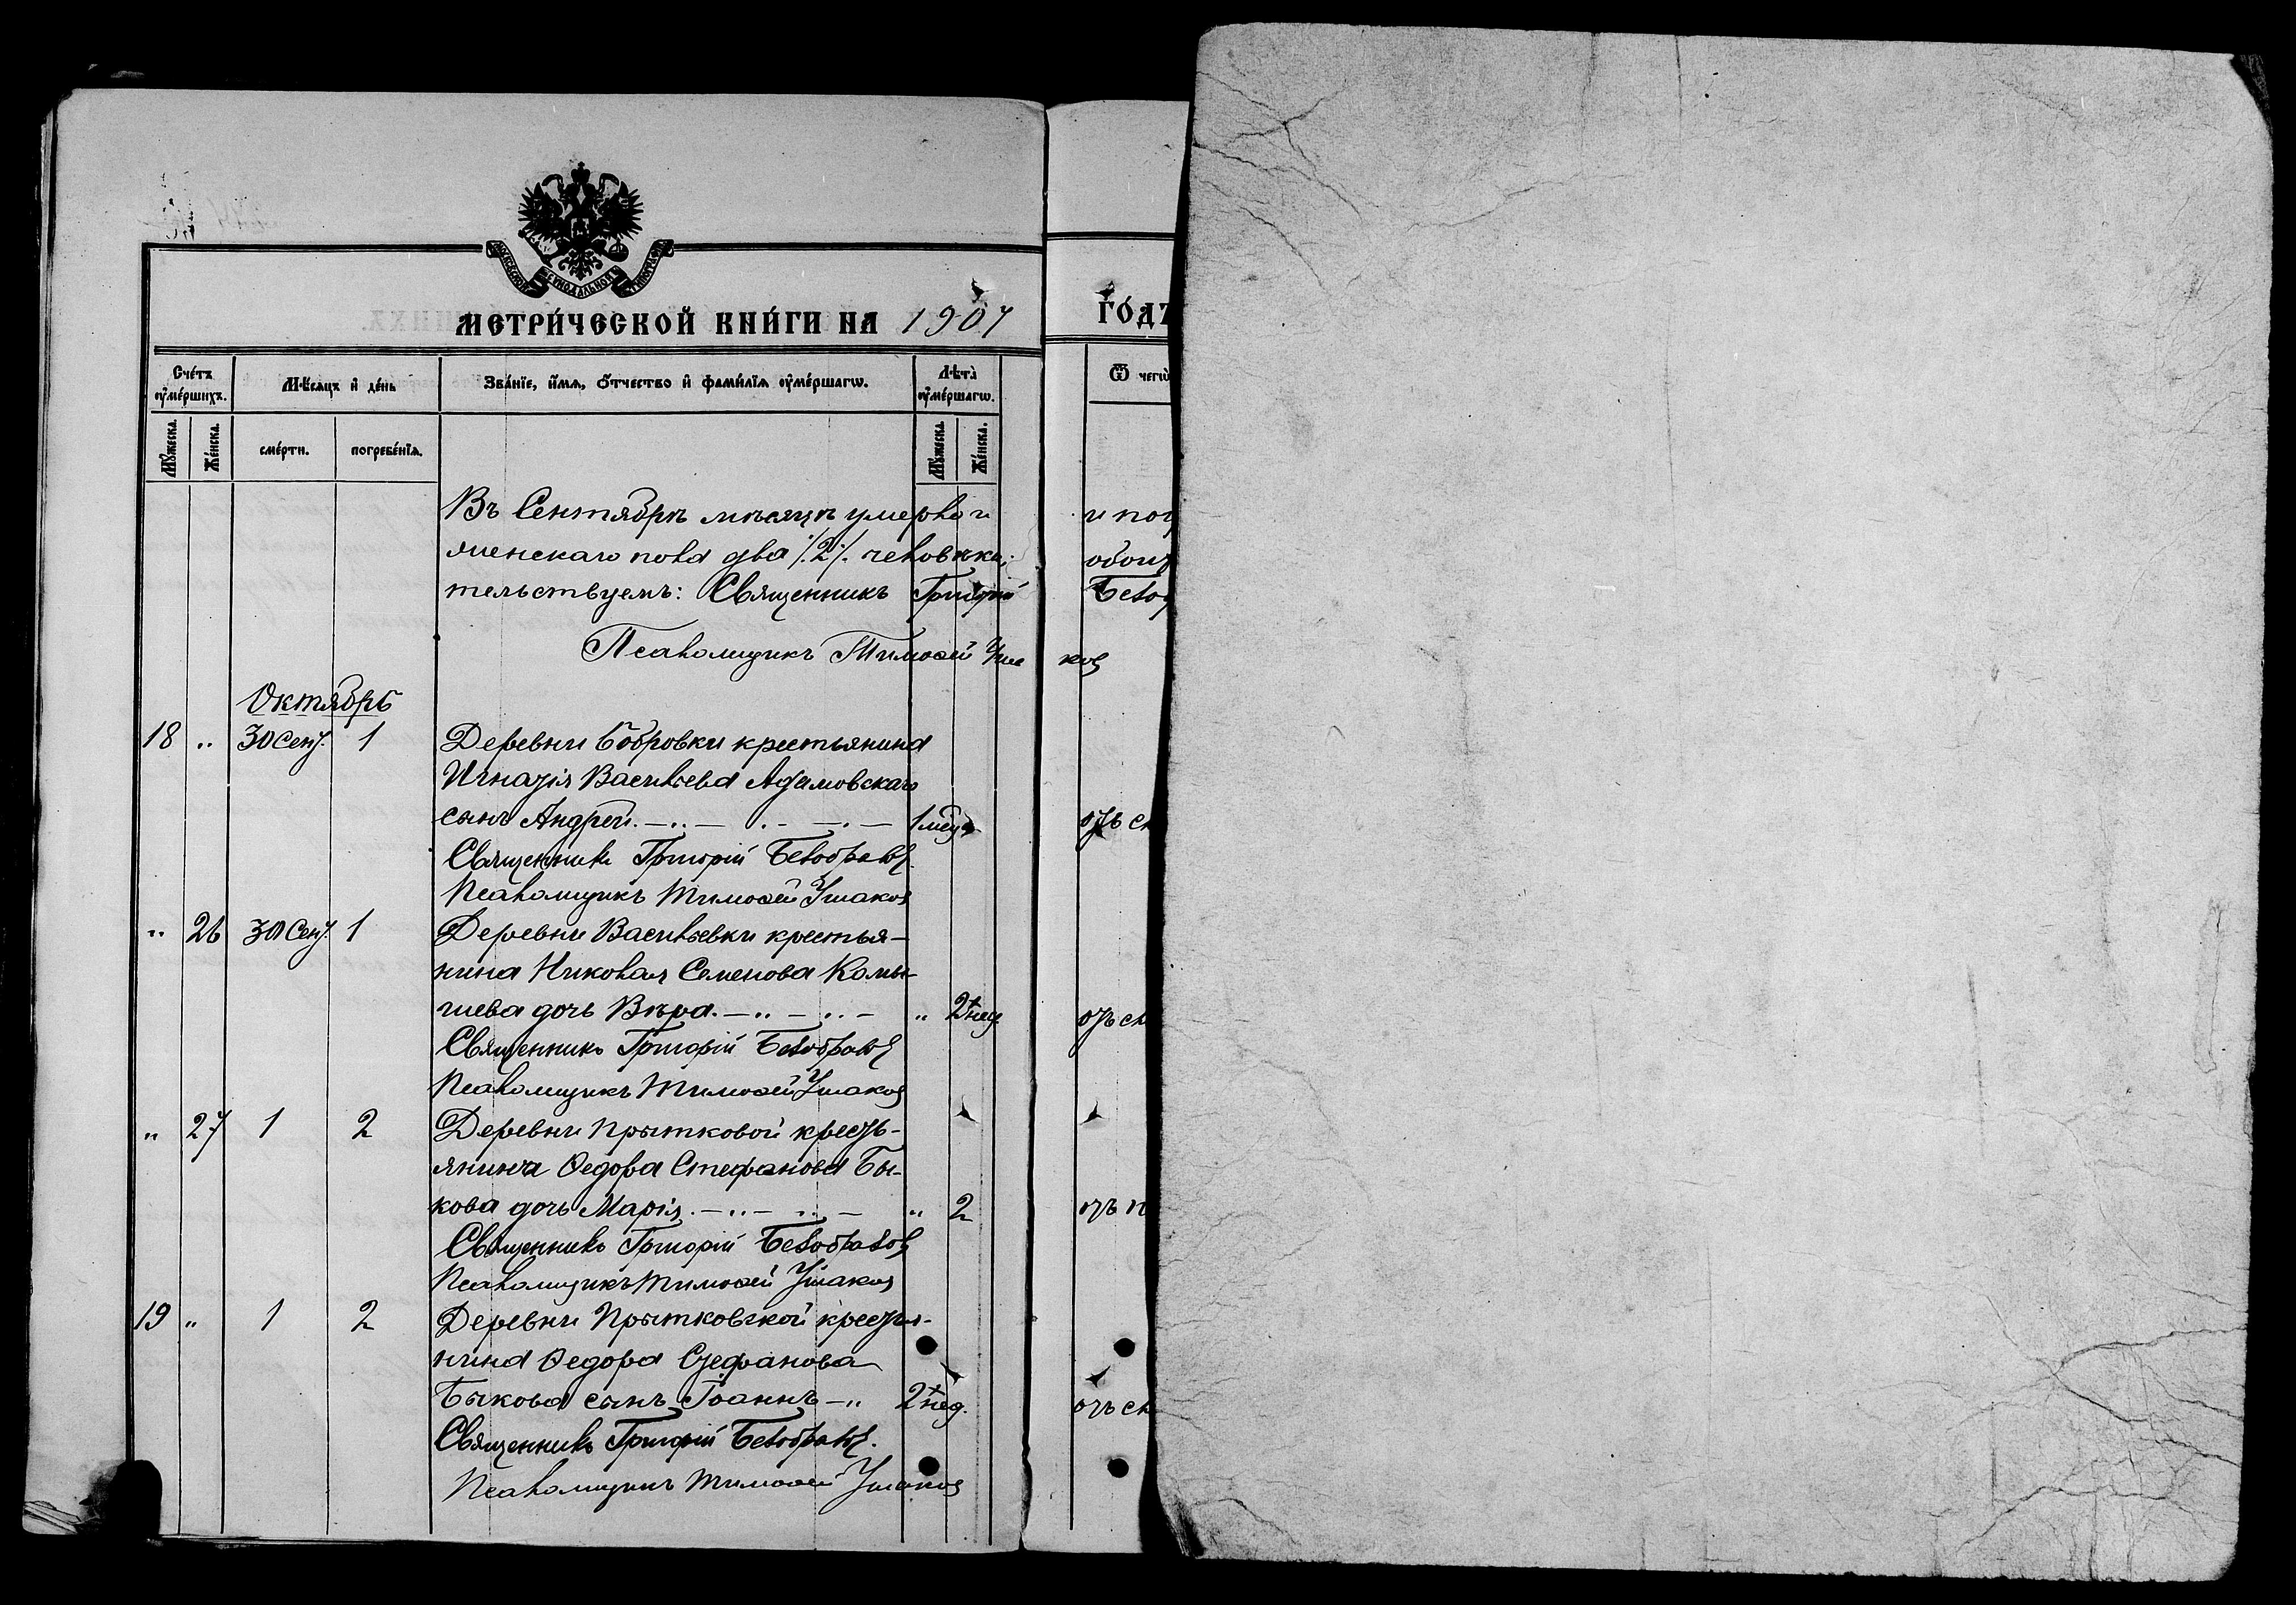 МОСКОВСКОЙ СѴНОДАЛЬНОЙ ТИПОГРАФІИ
МЕТРИ́ЧЕСКОЙ КНИ́ГИ НА 1907
ГО́ДЪ
Сче́тъ ᲂу҆ме́ршихъ.
Мѣ́сяцъ и҆ де́нь
Зва́нїе, и҆́мя, ѻ҆́тчество и҆ фами́лїя ᲂу҆ме́ршагѡ.
Лѣ́та ᲂу҆ме́ршагѡ.
Ѿ чегѡ̀
Мꙋ́жеска.
Же́нска.
сме́рти.
погребе́нїя.
Мꙋ́жеска.
Же́нска.
Въ Сентябрѣ мѣсяцѣ умерло и пог
женскаго пола два /.2/. человѣка; обоз
тельствуемъ: Священникъ Григорій Безоб
Псаломщикъ Тимоѳей Ушаковъ
Октябрь
18 „ 30 Сент. 1 Деревни Бобровки крестьянина
Игнатія Васильева Адамовскаго
сынъ Андрей. 1 мѣс. отъ сл
Священникъ Григорій Безобразовъ
Псаломщикъ Тимоѳей Ушаковъ
„ 26 30 Сент. 1 Деревни Васильевки крестья-
нина Николая Семенова Камы-
шева дочь Вѣра. „ 2 нед. отъ сл
Священникъ Григорій Безобразовъ
Псаломщикъ Тимоѳей Ушаковъ
„ 27 1 2 Деревни Прытковой кресть-
янина Ѳедора Стефанова Бы-
кова дочь Марія. „ 2 отъ п
Священникъ Григорій Безобразовъ
Псаломщикъ Тимоѳей Ушаковъ
19 „ 1 2 Деревни Прытковской крестья-
нина Ѳедора Стефанова
Быкова сынъ Іоаннъ „ 2 нед. отъ сл
Священникъ Григорій Безобразовъ.
Псаломщикъ Тимоѳей Ушаковъ